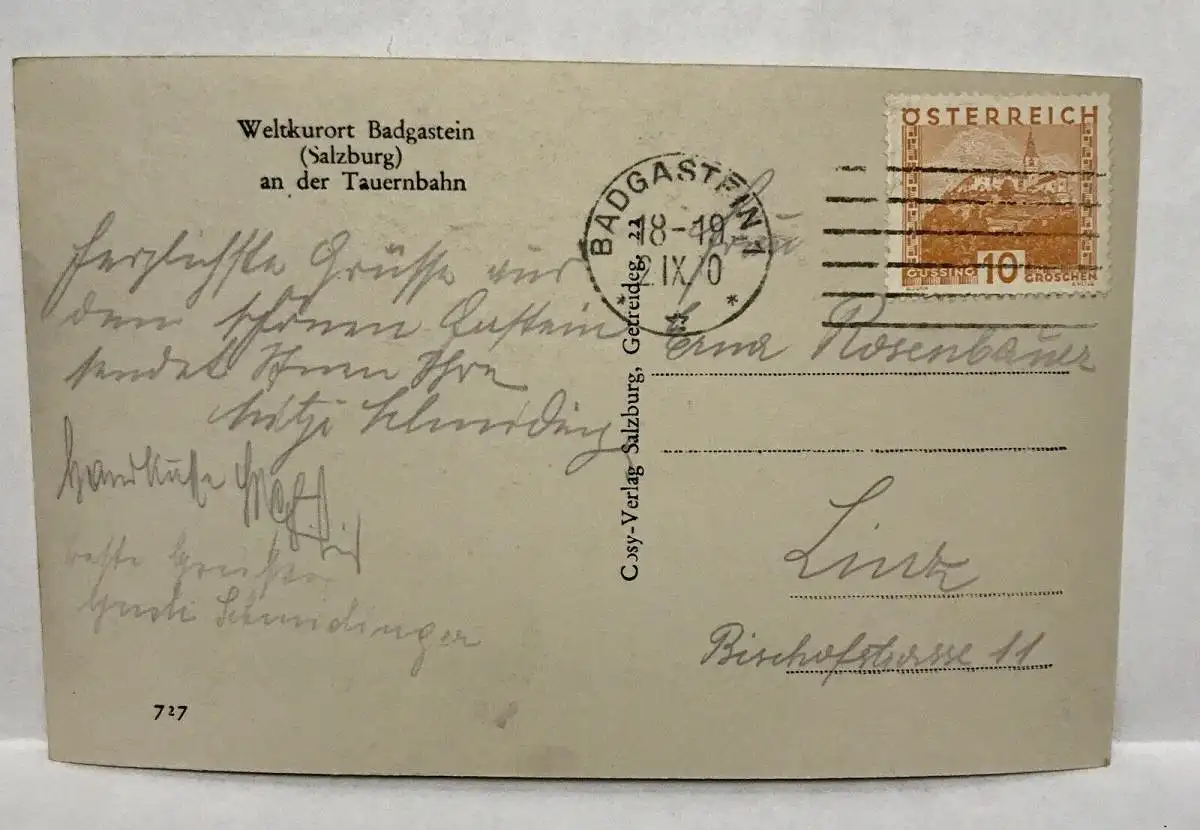 Weltkurort Badgastein
(Salzburg)
an der Tauernbahn
Herzlichste Grüsse aus
dem schönen Gastein
sendet Ihnen Ihre
Mitzi Schmidinger
Handküsse
beste Grüsse
Schmidinger
727
Cosy-Verlag Salzburg, Getreideg. 22
BADGASTEIN 1
18-19
2 IX 0
ÖSTERREICH
GÜSSING 10 GROSCHEN
Frau
Erna Rosenbauer
Linz
Bischofstrasse 11